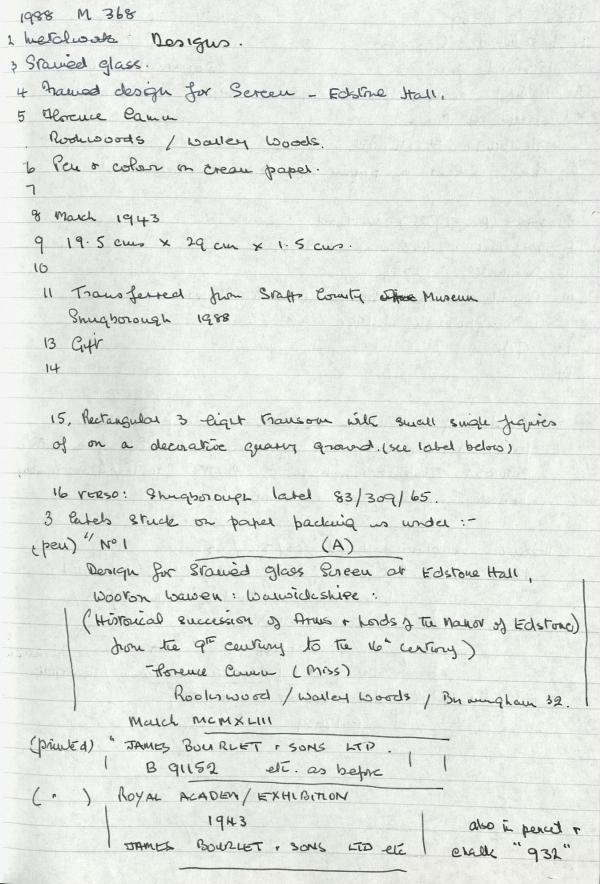 1988 M 368
2 Metalwork Designs.
3 Stained glass.
4 Framed design for Screen - Edstone Hall.
5 Florence Camm
Rookwoods / Warley Woods.
6 Pen & colour on cream paper.
7
8 March 1943
9 19.5 cms x 29 cm x 1.5 cms.
10
11 Transferred from Staffs County Museum
Shugborough 1988
13 Gift
14
15, Rectangular 3 light transom with small single figures
of on a decorative quarry ground. (see label below)
16 VERSO: Shugborough label 83/309/65.
3 labels stuck on paper backing as under :-
(pen) " No 1 (A)
Design for Stained glass Screen at Edstone Hall,
Wooton Wawen : Warwickshire :
(Historical succession of Arms & Lords of the Manor of Edstone)
from the 9th century to the 16th century)
Florence Camm (Miss)
Rookswood / Warley Woods / Birmingham 32.
March MCMXLIII
(printed) " JAMES BOURLET & SONS LTD.
B 91152 etc. as before
( " ) ROYAL ACADEMY EXHIBITION
1943
JAMES BOURLET & SONS LTD etc
also in pencil &
chalk "932"